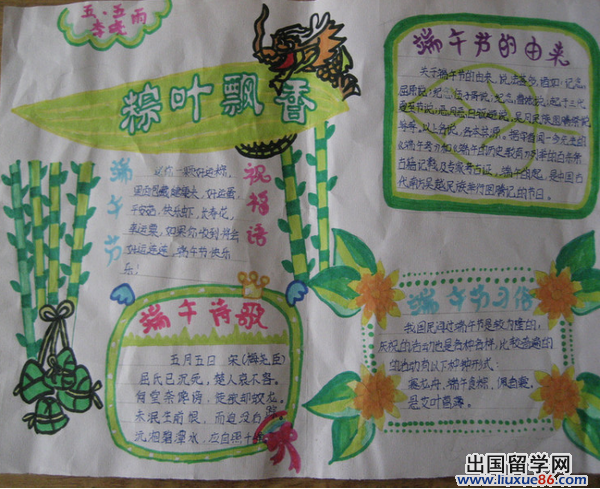 五.五
李晓雨
粽叶飘香
端午节
祝福语
送你一颗好运粽,
平安菇,快乐虾,长寿花,
幸运菜,如果你收到并会
好运连连,端午节快乐
乐!
端午诗歌
五月五日 宋(梅尧臣)
屈氏已沉死,楚人哀不容。
何尝奈谗谤,徒欲却蛟龙。
未泯生前恨,而追没后
沅湘碧潭水,应自照千
端午节的由来
关于端午节的由来,说法甚多,诸如:纪念
屈原说;纪念伍子胥说;纪念曹娥说;起于三代
夏至节说;恶月恶日驱避说,吴月民族图腾祭说
等等。以上各说,各本其源。据学者闻一多先生的
《端午考》和《端午的历史教育》列举的百余条
古籍记载及专家考古证,端午的起,是中国古
代南方吴越民族举行图腾记的节日。
端午节习俗
我国民间过端午节是较为隆的,
庆祝的活动也是各种各样,比较普遍的
的活动有以下种种形式:
赛龙舟,端午食粽,佩香囊,
悬艾叶菖蒲。
出国留学网
www.liuxue86.com